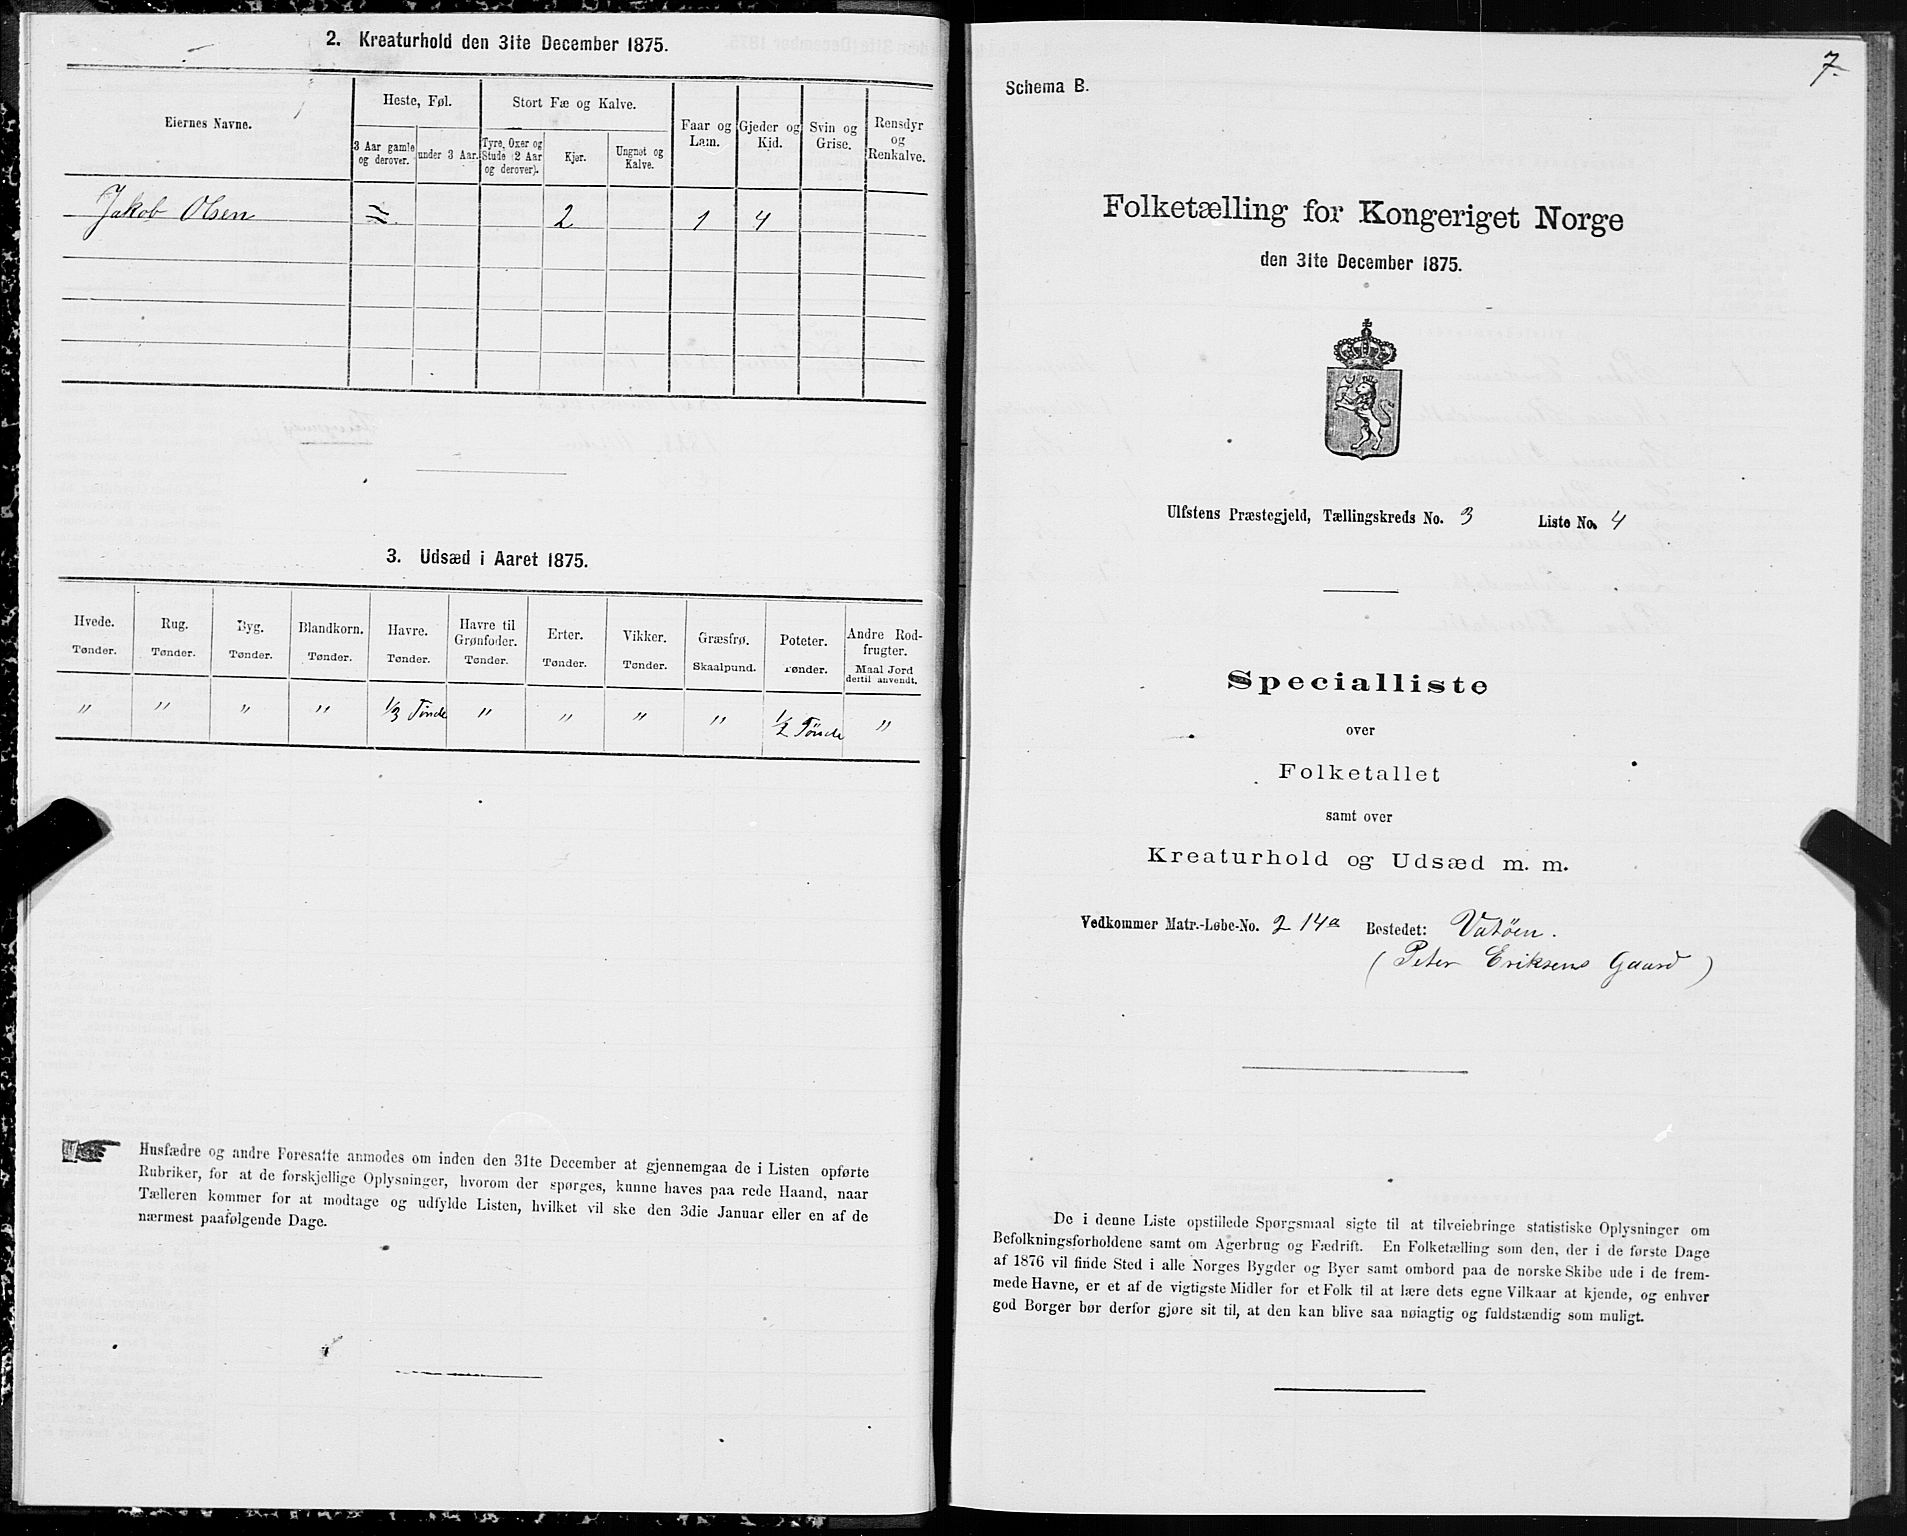 2. Kreaturhold den 31te December 1875.
Eiernes Navne.
Heste, Føl.
Stort Fæ og Kalve.
Faar og Lam.
Gjeder og Kid.
Svin og Grise.
Rensdyr og Renkalve.
3 Aar gamle og derover.
under 3 Aar.
Tyre, Oxer og Stude (2 Aar og derover).
Kjør.
Ungnøt og Kalve.
Jakob Olsen 2 1 4
3. Udsæd i Aaret 1875.
Hvede. Rug. Byg. Blandkorn. Havre. Havre til Grønfoder. Erter. Vikker. Græsfrø. Poteter. Andre Rodfrugter.
Tønder. Tønder. Tønder. Tønder. Tønder. Tønder. Tønder. Tønder. Skaalpund. Tønder. Maal Jord dertil anvendt.
" " " " 1/3 Tönde " " " " 1/2 Tönde "
Husfædre og andre Foresatte anmodes om inden den 31te December at gjennemgaa de i Listen opførte
Rubriker, for at de forskjellige Oplysninger, hvorom der spørges, kunne haves paa rede Haand, naar
Tælleren kommer for at modtage og udfylde Listen, hvilket vil ske den 3die Januar eller en af de
nærmest paafølgende Dage.
7.
Schema B.
Folketælling for Kongeriget Norge
den 31te December 1875.
Ulfstens Præstegjeld, Tællingskreds No. 3 Liste No. 4
Specialliste
over
Folketallet
samt over
Kreaturhold og Udsæd m. m.
Vedkommer Matr.-Løbe-No. 214a Bostedet: Vatöen.
(Peter Eriksens Gaard)
De i denne Liste opstillede Spørgsmaal sigte til at tilveiebringe statistiske Oplysninger om
Befolkningsforholdene samt om Agerbrug og Fædrift. En Folketælling som den, der i de første Dage
af 1876 vil finde Sted i alle Norges Bygder og Byer samt ombord paa de norske Skibe ude i de frem-
mede Havne, er et af de vigtigste Midler for et Folk til at lære dets egne Vilkaar at kjende, og enhver
god Borger bør derfor gjøre sit til, at den kan blive saa nøiagtig og fuldstændig som muligt.